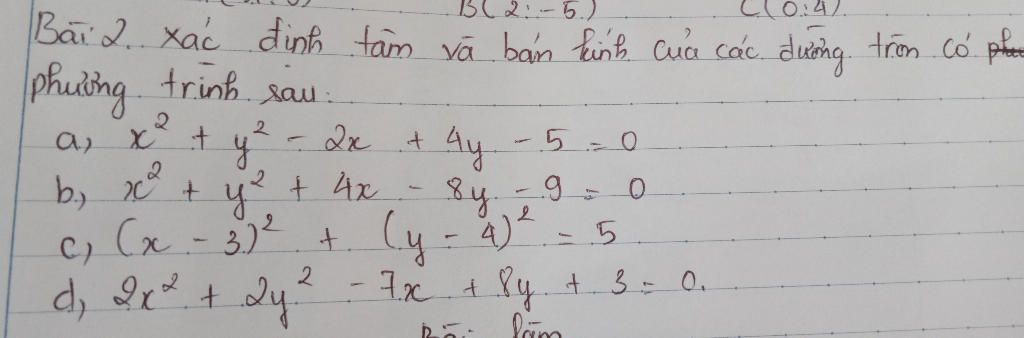 B(2;-5) C(0;4)
Bài 2. xác định tâm và bán kính của các đường tròn có
phương trình sau:
a, x² + y² - 2x + 4y - 5 = 0
b, x² + y² + 4x - 8y - 9 = 0
c, (x - 3)² + (y - 4)² = 5
d, 2x² + 2y² - 7x + 8y + 3 = 0.
Bài làm